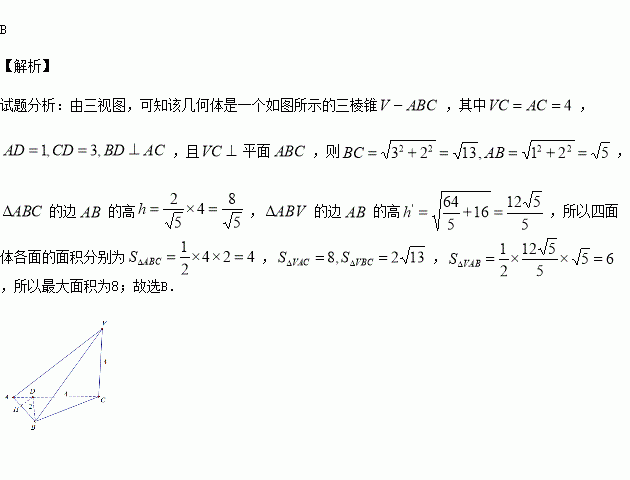 B
【解析】
试题分析：由三视图，可知该几何体是一个如图所示的三棱锥V－ABC ，其中VC＝AC＝4 ，
AD＝1,CD＝3,BD⊥AC ，且VC⊥ 平面 ABC ，则 BC＝√(3²＋2²)＝√13,AB＝√(1²＋2²)＝√5 ，
ΔABC 的边 AB 的高 h＝2/√5×4＝8/√5 ，ΔABV 的边 AB 的高 h'＝√(64/5＋16)＝12√5/5 ，所以四面
体各面的面积分别为 S△ABC＝1/2×4×2＝4 ， S△VAC＝8,S△VBC＝2√13 ， S△VAB＝1/2×12√5/5×√5＝6
，所以最大面积为8；故选B．
V
4
A D 4 C
H 2
B